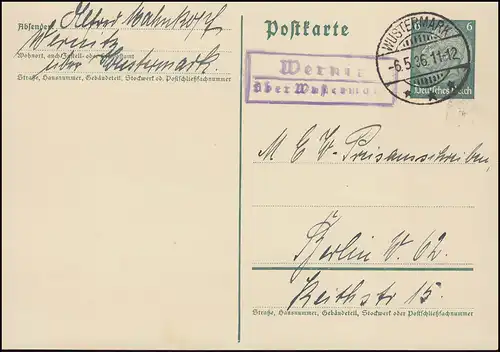 Absender: Alfred Mahnkopf
Wernitz
Wohnort, auch Zustell- oder Leitpostamt
über Wustermark.
Straße, Hausnummer, Gebäudeteil, Stockwerk od. Postschließfachnummer
Postkarte
Wernitz
über Wustermark
WUSTERMARK
-6.5.36.11-12
6
Deutsches Reich
M E W- Preisausschreiben,
Berlin W. 62.
Keithstr 15.
Straße, Hausnummer, Gebäudeteil, Stockwerk oder Postschließfachnummer